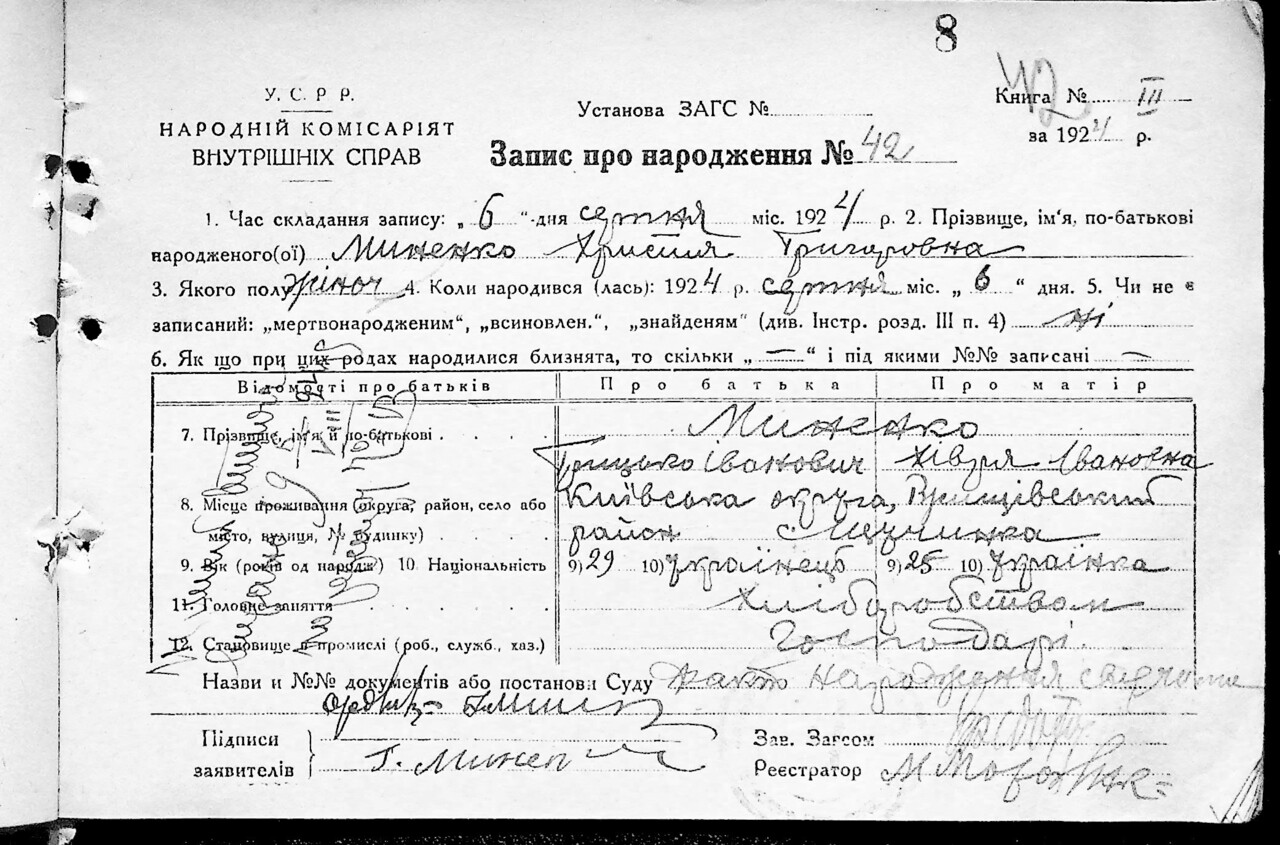 8
У. С. Р Р.
НАРОДНІЙ КОМІСАРІЯТ
ВНУТРІШНІХ СПРАВ
Установа ЗАГС №
42
Книга № III
за 1924 р.
Запис про народження № 42
1. Час складання запису: „ 6 “ дня серпня міс. 1924 р. 2. Прізвище, ім'я, по-батькові
народженого(ої) Миненко Христия Григоровна
3. Якого полу жіноч 4. Коли народився (лась): 1924 р. серпня міс. „ 6 “ дня. 5. Чи не є
записаний: „мертвонародженим“, „всиновлен.“, „знайденям“ (див. Інстр. розд. III п. 4) ні
6. Як що при цих родах народилися близнята, то скільки „ — “ і під якими №№ записані —
Відомості про батьків Про батька Про матір
7. Прізвище, ім'я й по-батькові Миненко
Грицько Іванович Хівря Івановна
8. Місце проживання (округа, район, село або
місто, вулиця, № будинку)
Київська округа,
район с
9. Вік (років од народж.) 10 Національність 9) 29 10) українець 9) 25 10) українка
11. Головне заняття Хліборобством
12. Становище в промислі (роб., служб., хаз.) Господарі
Назви и №№ документів або постанови Суду факт народження
Підписи
заявителів Г. Минен
Зав. Загсом
Реєстратор М